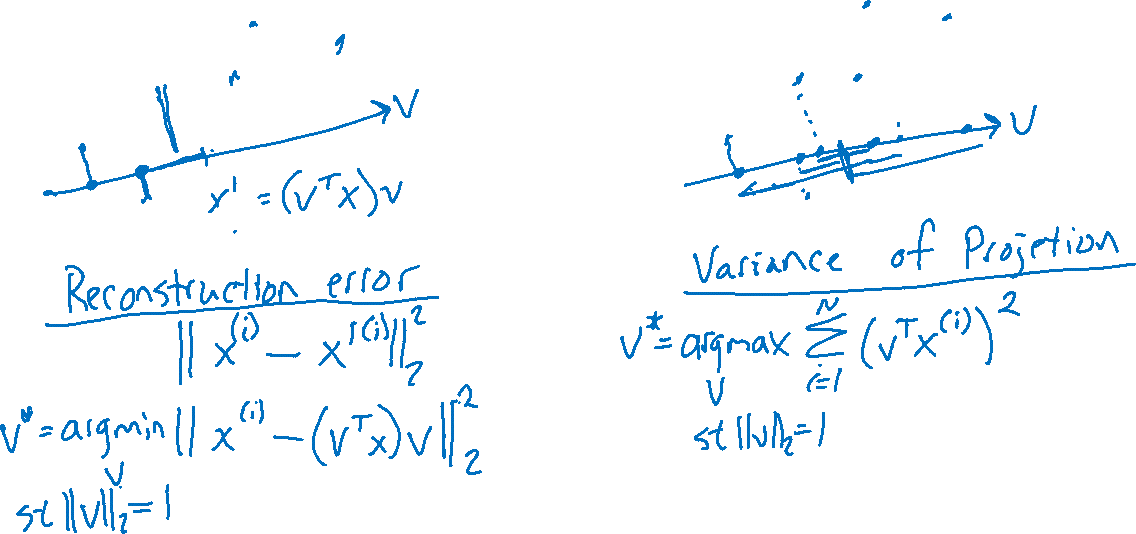 V
x' = (vᵀx)v
Reconstruction error
‖x⁽ⁱ⁾ − x'⁽ⁱ⁾‖₂²
v* = argmin ‖x⁽ⁱ⁾ − (vᵀx)v‖₂²
v
st ‖v‖₂ = 1
V
Variance of Projetion
v* = argmax ∑ᵢ₌₁ᴺ (vᵀx⁽ⁱ⁾)²
v
st ‖v‖₂ = 1